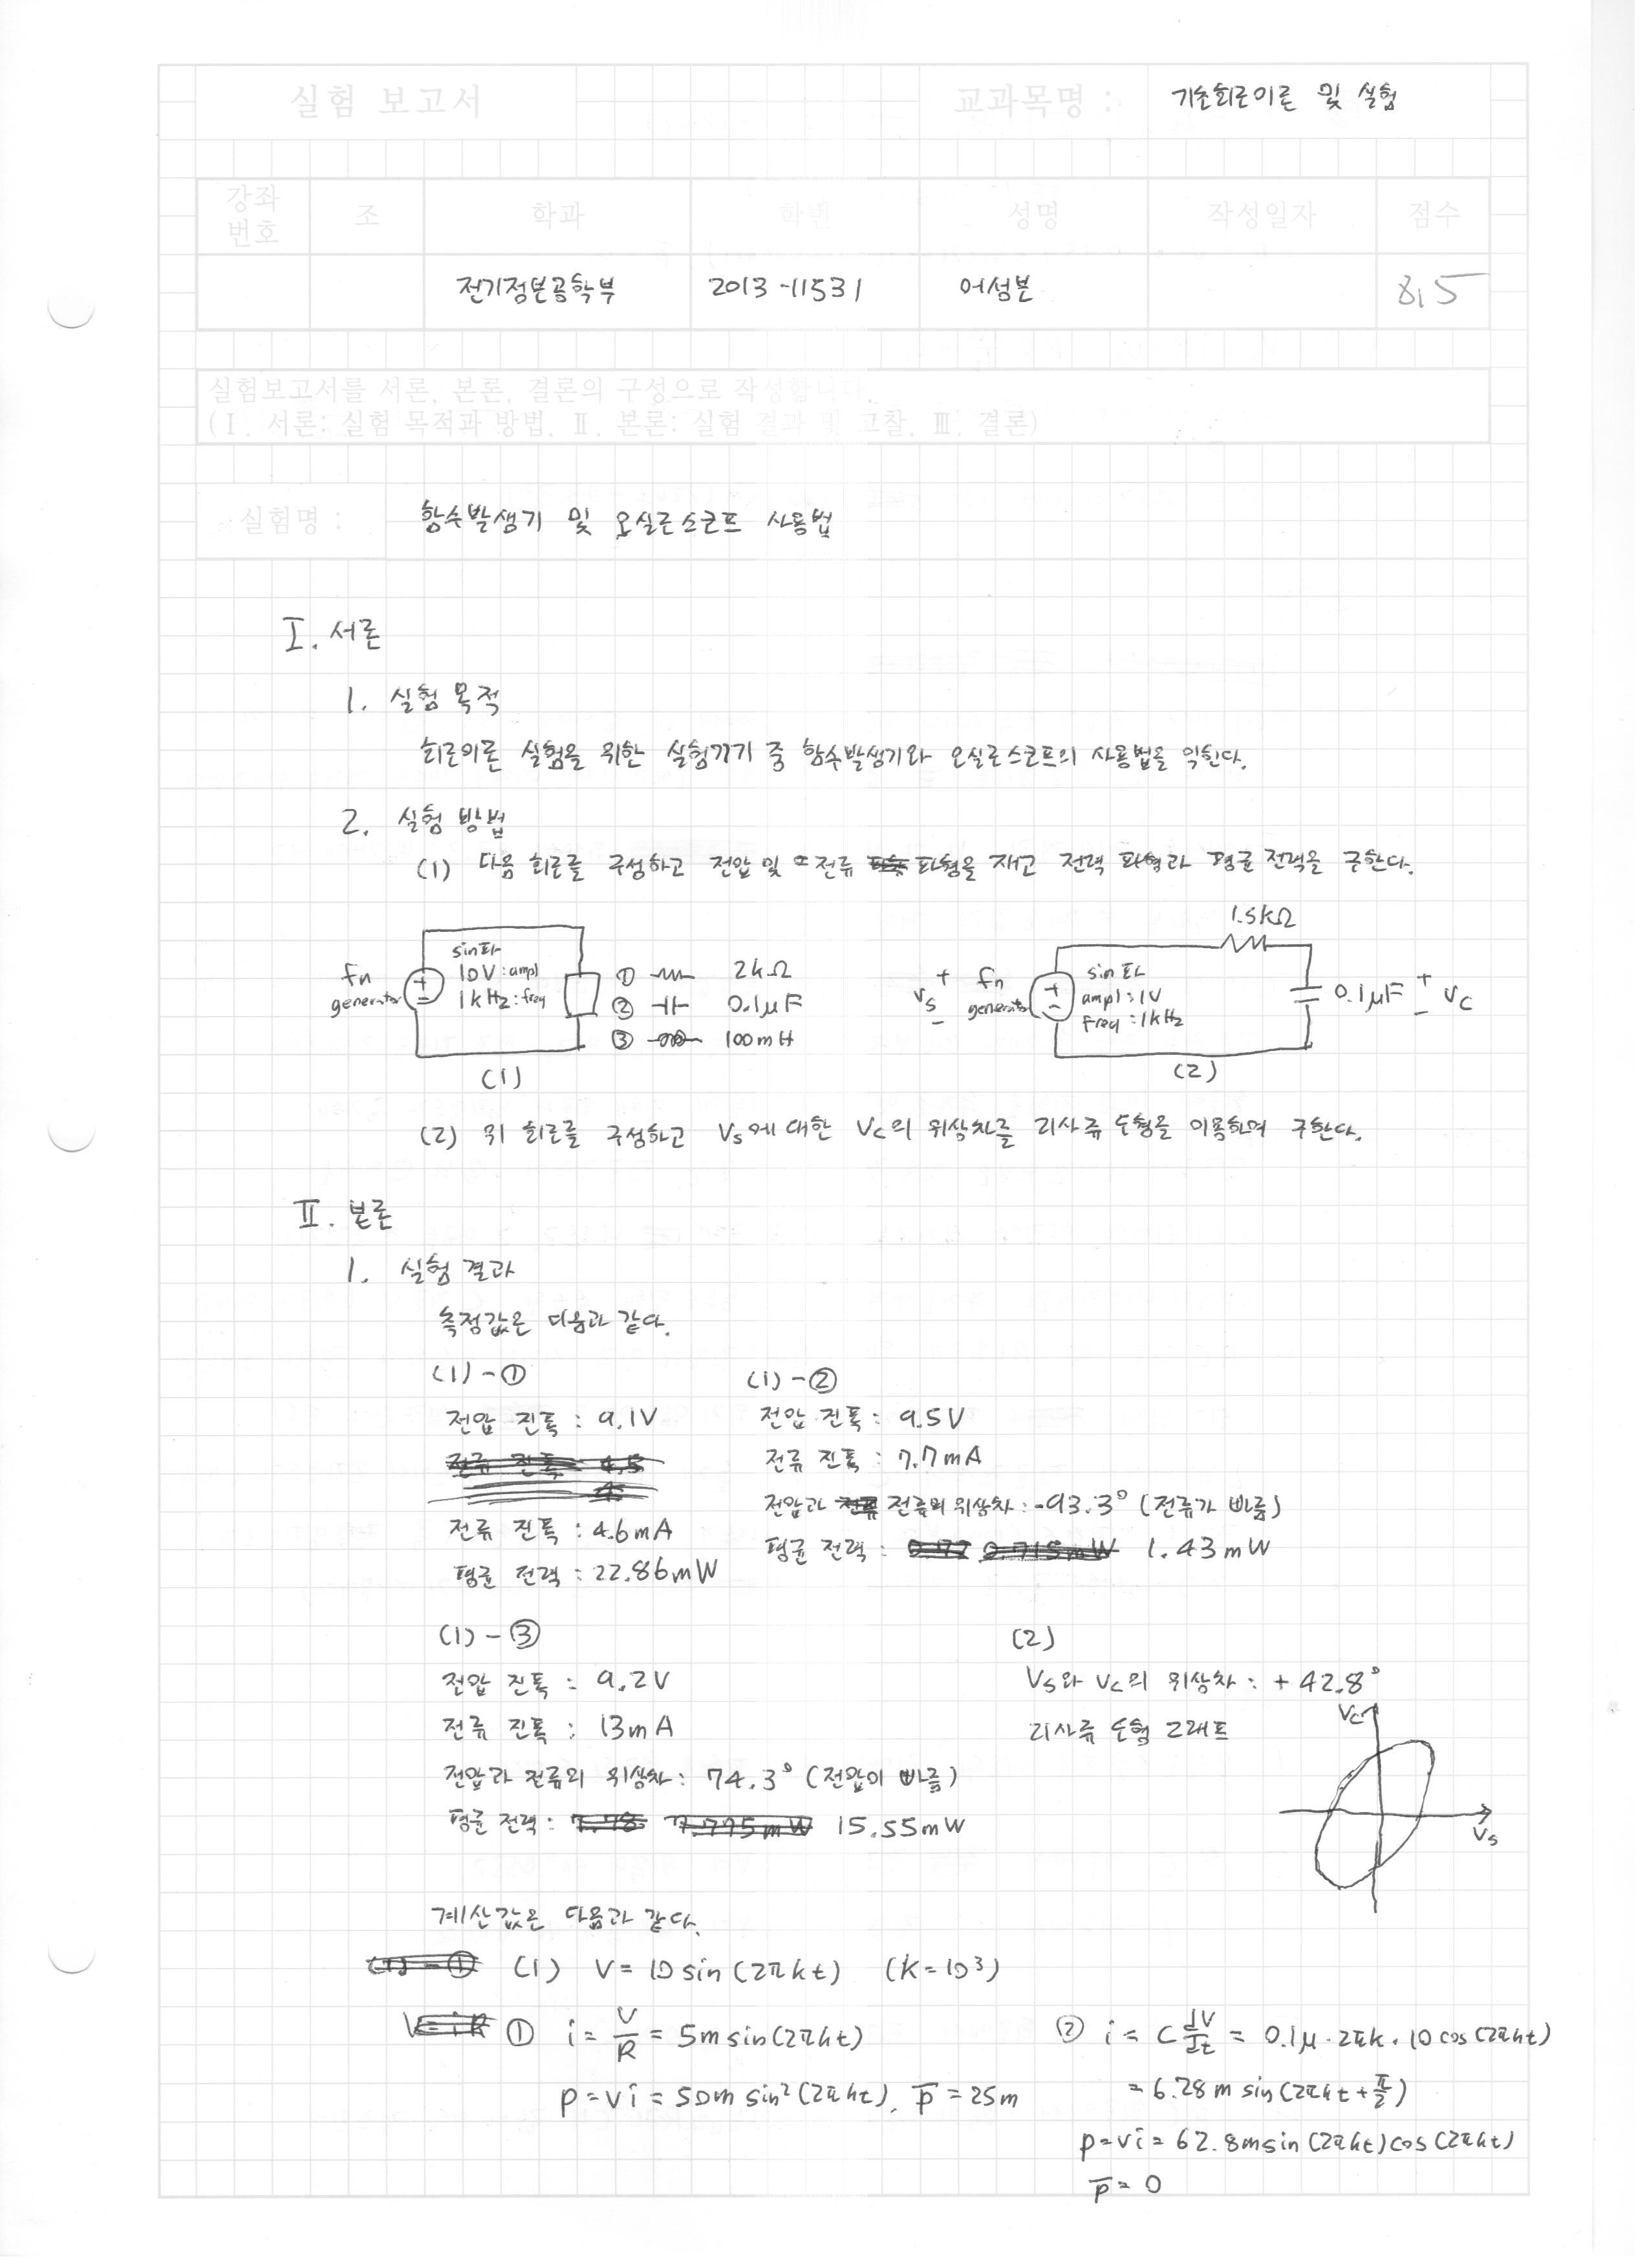 실험 보고서
교과목명 : 기초회로이론 및 실험
강좌번호 조 학과 학번 성명 작성일자 점수
전기정보공학부 2013-11531 어성본 8.5
실험보고서를 서론, 본론, 결론의 구성으로 작성합니다.
(Ⅰ. 서론: 실험 목적과 방법, Ⅱ. 본론: 실험 결과 및 고찰, Ⅲ. 결론)
실험명 : 함수발생기 및 오실로스코프 사용법
Ⅰ. 서론
1. 실험 목적
회로이론 실험을 위한 실험기기 중 함수발생기와 오실로스코프의 사용법을 익힌다.
2. 실험 방법
(1) 다음 회로를 구성하고 전압 및 전류 파형을 재고 전력 파형과 평균 전력을 구한다.
fn generator
sin파
10V : ampl
1kHz : freq
① 2kΩ
② 0.1μF
③ 100mH
(1)
1.5kΩ
Vs fn generator
sin파
ampl : 1V
Freq : 1kHz
0.1μF Vc
(2)
(2) 위 회로를 구성하고 Vs에 대한 Vc의 위상차를 리사쥬 도형을 이용하여 구한다.
Ⅱ. 본론
1. 실험 결과
측정값은 다음과 같다.
(1) - ①
전압 진폭 : 9.1V
전류 진폭 : 4.6mA
평균 전력 : 22.86mW
(1) - ②
전압 진폭 : 9.5V
전류 진폭 : 7.7mA
전압과 전류의 위상차 : -93.3° (전류가 빠름)
평균 전력 : 1.43mW
(1) - ③
전압 진폭 : 9.2V
전류 진폭 : 13mA
전압과 전류의 위상차 : 74.3° (전압이 빠름)
평균 전력 : 15.55mW
(2)
Vs와 Vc의 위상차 : +42.8°
리사쥬 도형 그래프
Vc
Vs
계산값은 다음과 같다.
(1) V = 10 sin (2πkt) (k = 10³)
① i = V/R = 5m sin(2πkt)
p = vi = 50m sin²(2πkt), p̄ = 25m
② i = C dV/dt = 0.1μ · 2πk · 10 cos (2πkt)
= 6.28m sin(2πkt + π/2)
p = vi = 62.8m sin(2πkt) cos(2πkt)
p̄ = 0